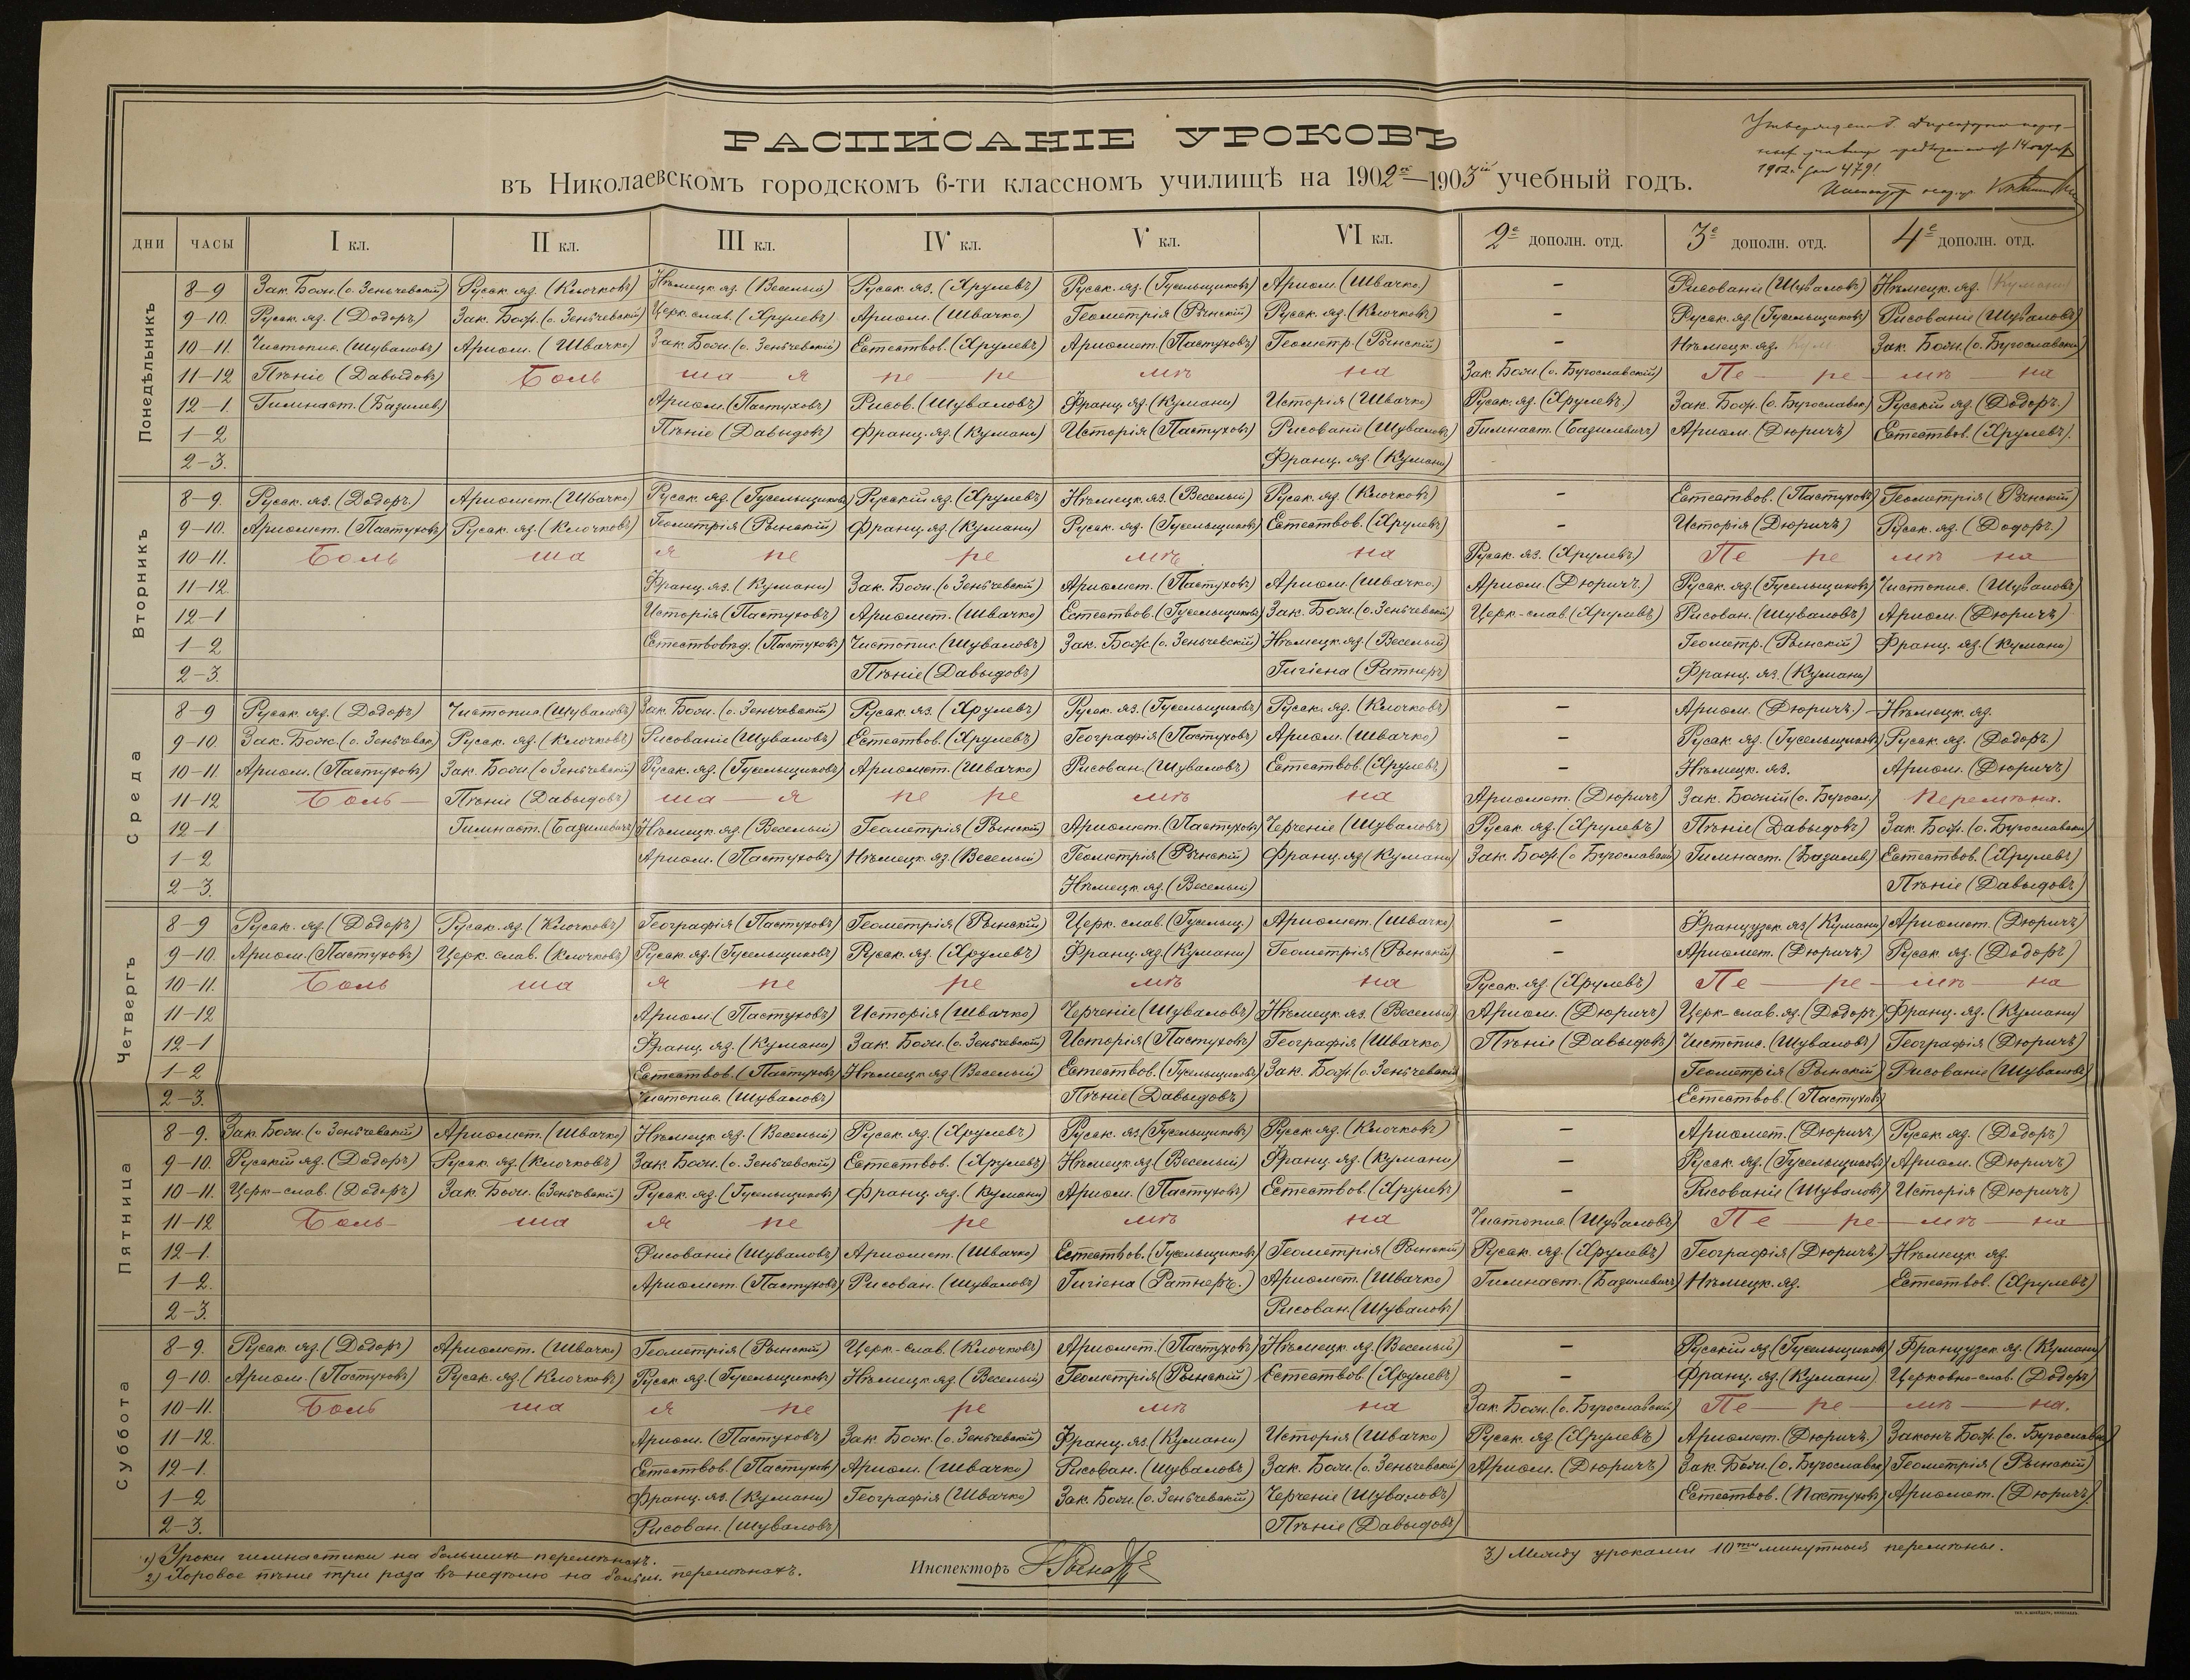 РАСПИСАНІЕ УРОКОВЪ
въ Николаевскомъ городскомъ 6-ти классномъ училищѣ на 1902ой—1903ій учебный годъ.
1902 г. за № 4791
ДНИ ЧАСЫ I кл. II кл. III кл. IV кл. V кл. VI кл. 2е дополн. отд. 3е дополн. отд. 4е дополн. отд.
Понедѣльникъ
8–9 Зак. Бож. (о. Зеньчевскій) Русск. яз. (Клочковъ) Нѣмецк. яз. (Веселый) Русск. яз. (Хрулевъ) Русск. яз. (Гусельщиковъ) Ариѳм. (Швачко) – Рисованіе (Шуваловъ) Нѣмецк. яз. (Кумани)
9–10. Русск. яз. (Додоръ) Зак. Бож. (о. Зеньчевскій) Церк. слав. (Хрулевъ) Ариѳм. (Швачко) Геометрія (Рѣнскій) Русск. яз. (Клочковъ) – Русск. яз. (Гусельщиковъ) Рисованіе (Шуваловъ)
10–11. Чистопис. (Шуваловъ) Ариѳм. (Швачко) Зак. Бож. (о. Зеньчевскій) Естествов. (Хрулевъ) Ариѳмет. (Пастуховъ) Геометр. (Рѣнскій) – Нѣмецк. яз. Кум Зак. Бож. (о. Бугославскій)
11–12 Пѣніе (Давыдовъ) Боль ша я пе ре мѣ на Зак. Бож. (о. Бугославскій) Пе – ре – мѣ – на
12–1. Гимнаст. (Базилев.) Ариѳм. (Пастуховъ) Рисов. (Шуваловъ) Франц. яз. (Кумани) Исторія (Швачко) Русск. яз. (Хрулевъ) Зак. Бож. (о. Бугославск) Русскій яз. (Додоръ.)
1–2 Пѣніе (Давыдовъ) Франц. яз. (Кумани) Исторія (Пастуховъ) Рисованіе (Шуваловъ) Гимнаст. (Базилевичъ) Ариѳм. (Дюричъ) Естествов. (Хрулевъ).
2–3. Франц. яз. (Кумани)
Вторникъ
8–9. Русск. яз. (Додоръ.) Ариѳмет. (Швачко) Русск. яз. (Гусельщиковъ) Русскій яз. (Хрулевъ) Нѣмецк. яз. (Веселый) Русск. яз. (Клочковъ) – Естествов. (Пастуховъ) Геометрія (Рѣнскій)
9–10. Ариѳмет. (Пастуховъ) Русск. яз. (Клочковъ) Геометрія (Рѣнскій) Франц. яз. (Кумани) Русск. яз. (Гусельщиковъ) Естествов. (Хрулевъ) – Исторія (Дюричъ) Русск. яз. (Додоръ.)
10–11. Боль ша я пе ре мѣ на Русск. яз. (Хрулевъ) Пе ре мѣ на
11–12. Франц. яз. (Кумани) Зак. Бож. (о Зеньчевскій) Ариѳмет. (Пастуховъ) Ариѳм. (Швачко) Ариѳм. (Дюричъ.) Русск. яз. (Гусельщиковъ) Чистопис. (Шуваловъ)
12–1 Исторія (Пастуховъ) Ариѳмет. (Швачко) Естествов. (Гусельщиковъ) Зак. Бож. (о. Зеньчевскій) Церк-слав. (Хрулевъ) Рисован. (Шуваловъ) Ариѳм. (Дюричъ)
1–2 Естествовѣд. (Пастухов) Чистопис. (Шуваловъ) Зак. Бож. (о. Зеньчевскій) Нѣмецк. яз. (Веселый) Геометр. (Рѣнскій) Франц. яз. (Кумани)
2–3. Пѣніе (Давыдовъ) Гигіена (Ратнеръ) Франц. яз. (Кумани)
Среда
8–9 Русск. яз. (Додоръ) Чистопис. (Шуваловъ) Зак. Бож. (о. Зеньчевскій) Русск. яз. (Хрулевъ) Русск. яз. (Гусельщиковъ) Русск. яз. (Клочковъ) – Ариѳм. (Дюричъ.) Нѣмецк. яз.
9–10. Зак. Бож. (о. Зеньчевск) Русск. яз. (Клочковъ) Рисованіе (Шуваловъ) Естествов. (Хрулевъ) Географія (Пастуховъ) Ариѳм. (Швачко) – Русск. яз. (Гусельщиковъ) Русск. яз. (Додоръ.)
10–11. Ариѳм. (Пастуховъ) Зак. Бож. (о Зеньчевскій) Русск. яз. (Гусельщиковъ) Ариѳмет. (Швачко) Рисован. (Шуваловъ) Естествов. (Хрулевъ) – Нѣмецк. яз. Ариѳм. (Дюричъ)
11–12 Боль – Пѣніе (Давыдовъ) ша – я пе ре мѣ на Ариѳмет. (Дюричъ) Зак. Божій (о. Бугосл.) Перемѣна.
12–1 Гимнаст. (Базилевичъ) Нѣмецк. яз. (Веселый) Геометрія (Рѣнскій) Ариѳмет. (Пастуховъ) Черченіе (Шуваловъ) Русск. яз. (Хрулевъ) Пѣніе (Давыдовъ) Зак. Бож. (о. Бугославскій)
1–2 Ариѳм. (Пастуховъ) Нѣмецк. яз. (Веселый) Геометрія (Рѣнскій) Франц. яз. (Кумани) Зак. Бож. (о Бугославскій) Гимнаст. (Базилев.) Естествов. (Хрулевъ)
2–3. Нѣмецк. яз. (Веселый) Пѣніе (Давыдовъ)
Четвергъ
8–9 Русск. яз. (Додоръ) Русск. яз. (Клочковъ) Географія (Пастуховъ) Геометрія (Рѣнскій) Церк. слав. (Гусельщ.) Ариѳмет. (Швачко) – Французск. яз. (Кумани) Ариѳмет. (Дюричъ)
9–10. Ариѳм. (Пастуховъ) Церк. слав. (Клочковъ) Русск. яз. (Гусельщиковъ) Русск. яз. (Хрулевъ) Франц. яз. (Кумани) Геометрія (Рѣнскій) – Ариѳмет. (Дюричъ.) Русск. яз. (Додоръ)
10–11. Боль ша я пе ре мѣ на Русск. яз. (Хрулевъ) Пе – ре – мѣ – на
11–12 Ариѳм. (Пастуховъ) Исторія (Швачко) Черченіе (Шуваловъ) Нѣмецк. яз. (Веселый) Ариѳм. (Дюричъ) Церк-слав. яз. (Додоръ) Франц. яз. (Кумани)
12–1 Франц. яз. (Кумани) Зак. Бож. (о. Зеньчевскій) Исторія (Пастуховъ) Географія (Швачко) Пѣніе (Давыдовъ) Чистопис. (Шуваловъ) Географія (Дюричъ)
1–2 Естествов. (Пастуховъ) Нѣмецк. яз. (Веселый) Естествов. (Гусельщиковъ) Зак. Бож. (о. Зеньчевскій) Геометрія (Рѣнскій) Рисованіе (Шуваловъ)
2–3. Чистопис. (Шуваловъ) Пѣніе (Давыдовъ) Естествов. (Пастухов)
Пятница
8–9. Зак. Бож. (о Зеньчевскій) Ариѳмет. (Швачко) Нѣмецк. яз. (Веселый) Русск. яз. (Хрулевъ) Русск. яз. (Гусельщиковъ) Русск. яз. (Клочковъ) – Ариѳмет. (Дюричъ) Русск. яз. (Додоръ)
9–10. Русскій яз. (Додоръ) Русск. яз. (Клочковъ) Зак. Бож. (о. Зеньчевскій) Естествов. (Хрулевъ) Нѣмецк. яз. (Веселый) Франц. яз. (Кумани) – Русск. яз. (Гусельщиковъ) Ариѳм. (Дюричъ)
10–11. Церк-слав. (Додоръ) Зак. Бож. (о Зеньчевскій) Русск. яз. (Гусельщиковъ) Франц. яз. (Кумани) Ариѳм. (Пастуховъ) Естествов. (Хрулевъ) – Рисованіе (Шуваловъ) Исторія (Дюричъ)
11–12 Боль – ша я пе ре мѣ на Чистопис. (Шуваловъ) Пе – ре – мѣ – на
12–1. Рисованіе (Шуваловъ) Ариѳмет. (Швачко) Естествов. (Гусельщиковъ) Геометрія (Рѣнскій) Русск. яз. (Хрулевъ) Географія (Дюричъ) Нѣмецк. яз.
1–2. Ариѳмет. (Пастуховъ) Рисован. (Шуваловъ) Гигіена (Ратнеръ.) Ариѳмет. (Швачко) Гимнаст. (Базилевичъ) Нѣмецк. яз. Естествов. (Хрулевъ)
2–3. Рисован. (Шуваловъ)
Суббота
8–9. Русск. яз. (Додоръ) Ариѳмет. (Швачко) Геометрія (Рѣнскій) Церк-слав. (Клочковъ) Ариѳмет. (Пастуховъ) Нѣмецк. яз. (Веселый) – Русскій яз. (Гусельщиковъ) Французск. яз. (Кумани)
9–10. Ариѳм. (Пастуховъ) Русск. яз. (Клочковъ) Русск. яз. (Гусельщиковъ) Нѣмецк. яз. (Веселый) Геометрія (Рѣнскій) Естествов. (Хрулевъ) – Франц. яз. (Кумани) Церковно-слав. (Додоръ)
10–11. Боль ша я пе ре мѣ на Зак. Бож. (о. Бугославскій) Пе – ре – мѣ – на.
11–12. Ариѳм. (Пастуховъ) Зак. Бож. (о. Зеньчевскій) Франц. яз. (Кумани) Исторія (Швачко) Русск. яз. (Хрулевъ) Ариѳмет. (Дюричъ.) Законъ Бож. (о. Бугославск)
12–1. Естествов. (Пастухов) Ариѳм. (Швачко) Рисован. (Шуваловъ) Зак. Бож. (о. Зеньчевскій) Ариѳм. (Дюричъ) Зак. Бож. (о. Бугославск) Геометрія (Рѣнскій)
1–2 Франц. яз. (Кумани) Географія (Швачко) Зак. Бож. (о. Зеньчевскій) Черченіе (Шуваловъ) Естествов. (Пастуховъ) Ариѳмет. (Дюричъ).
2–3. Рисован. (Шуваловъ) Пѣніе (Давыдовъ)
1) Уроки гимнастики на большихъ перемѣнахъ.
2) Хоровое пѣніе три раза въ недѣлю на больш. перемѣнахъ.
Инспекторъ
3) Между уроками 10ти минутныя перемѣны.